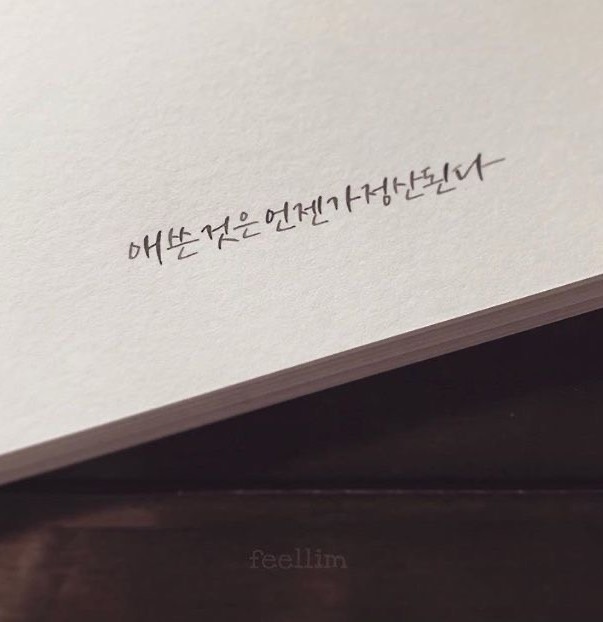 애쓴 것은 언젠가 정산된다
feellim